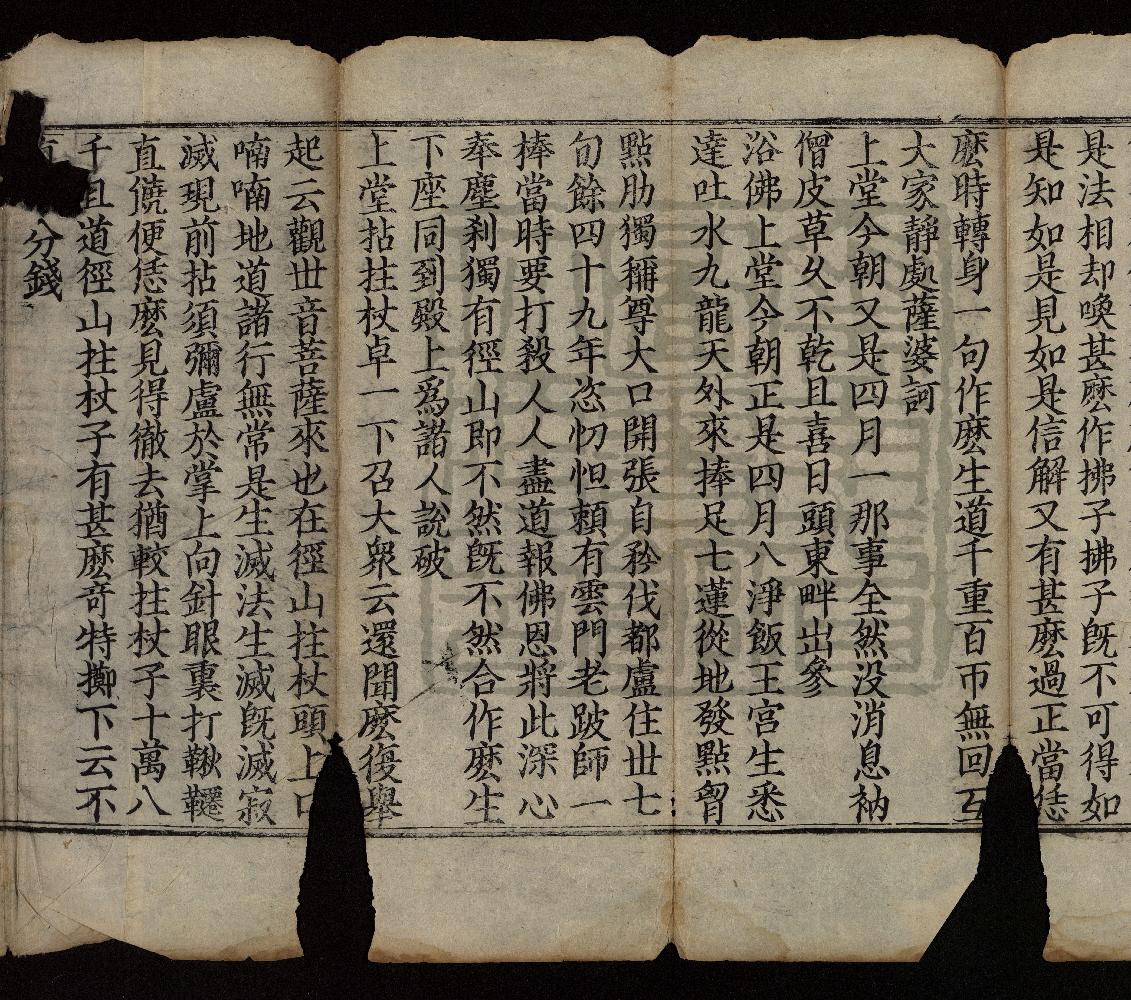 是法相却喚甚麽作拂子拂子旣不可得如
是知如是見如是信解又有甚麽過正當恁
麽時轉身一句作麽生道千重百帀無回互
大家靜處薩婆訶
上堂今朝又是四月一那事全然没消息衲
僧皮草久不乾且喜日頭東畔出參
浴佛上堂今朝正是四月八淨飯王宫生悉
達吐水九龍天外來捧足七蓮從地發點胷
點肋獨稱尊大口開張自矜伐都盧住丗七
旬餘四十九年恣忉怛頼有雲門老跛師一
棒當時要打殺人人盡道報佛恩將此深心
奉塵刹獨有徑山即不然旣不然合作麽生
下座同到殿上爲諸人說破
上堂拈拄杖卓一下召大衆云還聞麽復舉
起云觀丗音菩薩來也在徑山拄杖頭上口
喃喃地道諸行無常是生滅法生滅旣滅寂
滅現前拈須彌盧於掌上向針眼裏打鞦韆
直饒便恁麽見得徹去猶較拄杖子十萬八
千且道徑山拄杖子有甚麽竒特擲下云不
分錢